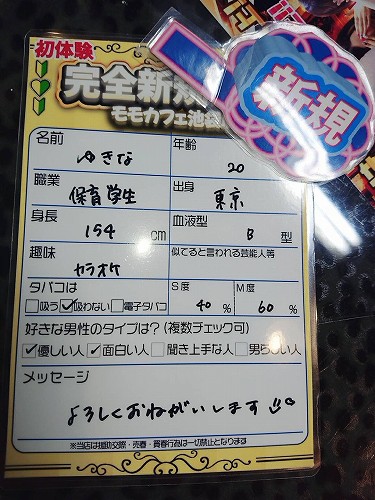 初体験
完全新規
モモカフェ池袋
新規
名前 ゆきな 年齢 20
職業 保育学生 出身 東京
身長 154 cm 血液型 B 型
趣味 カラオケ 似てると言われる芸能人等
タバコは S度 M度
吸う 吸わない 電子タバコ 40% 60%
好きな男性のタイプは?(複数チェック可)
優しい人 面白い人 聞き上手な人 男らしい人
メッセージ
よろしくおねがいします
※当店は援助交際・売春・買春行為は一切禁止となります